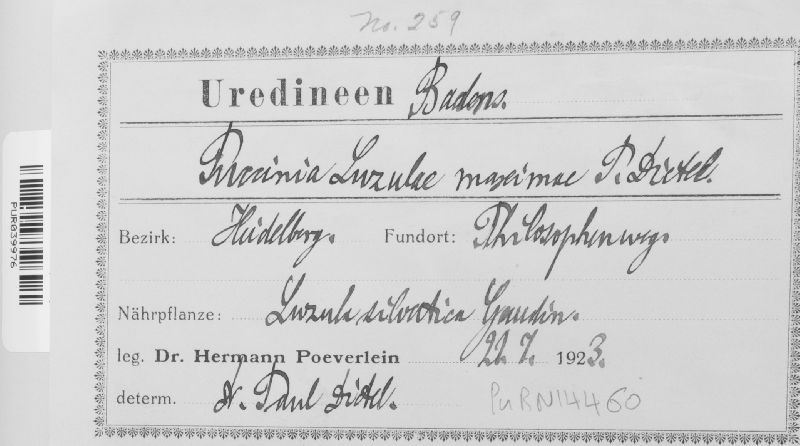 No. 259
Uredineen Badens.
Puccinia Luzulae maximae P. Dietel.
Bezirk: Heidelberg. Fundort: Philosophenweg.
Nährpflanze: Luzula silvatica Gaudin.
leg. Dr. Hermann Poeverlein 22. 7. 1923.
determ. Dr. Paul Dietel.
PURN14460
PUR039976